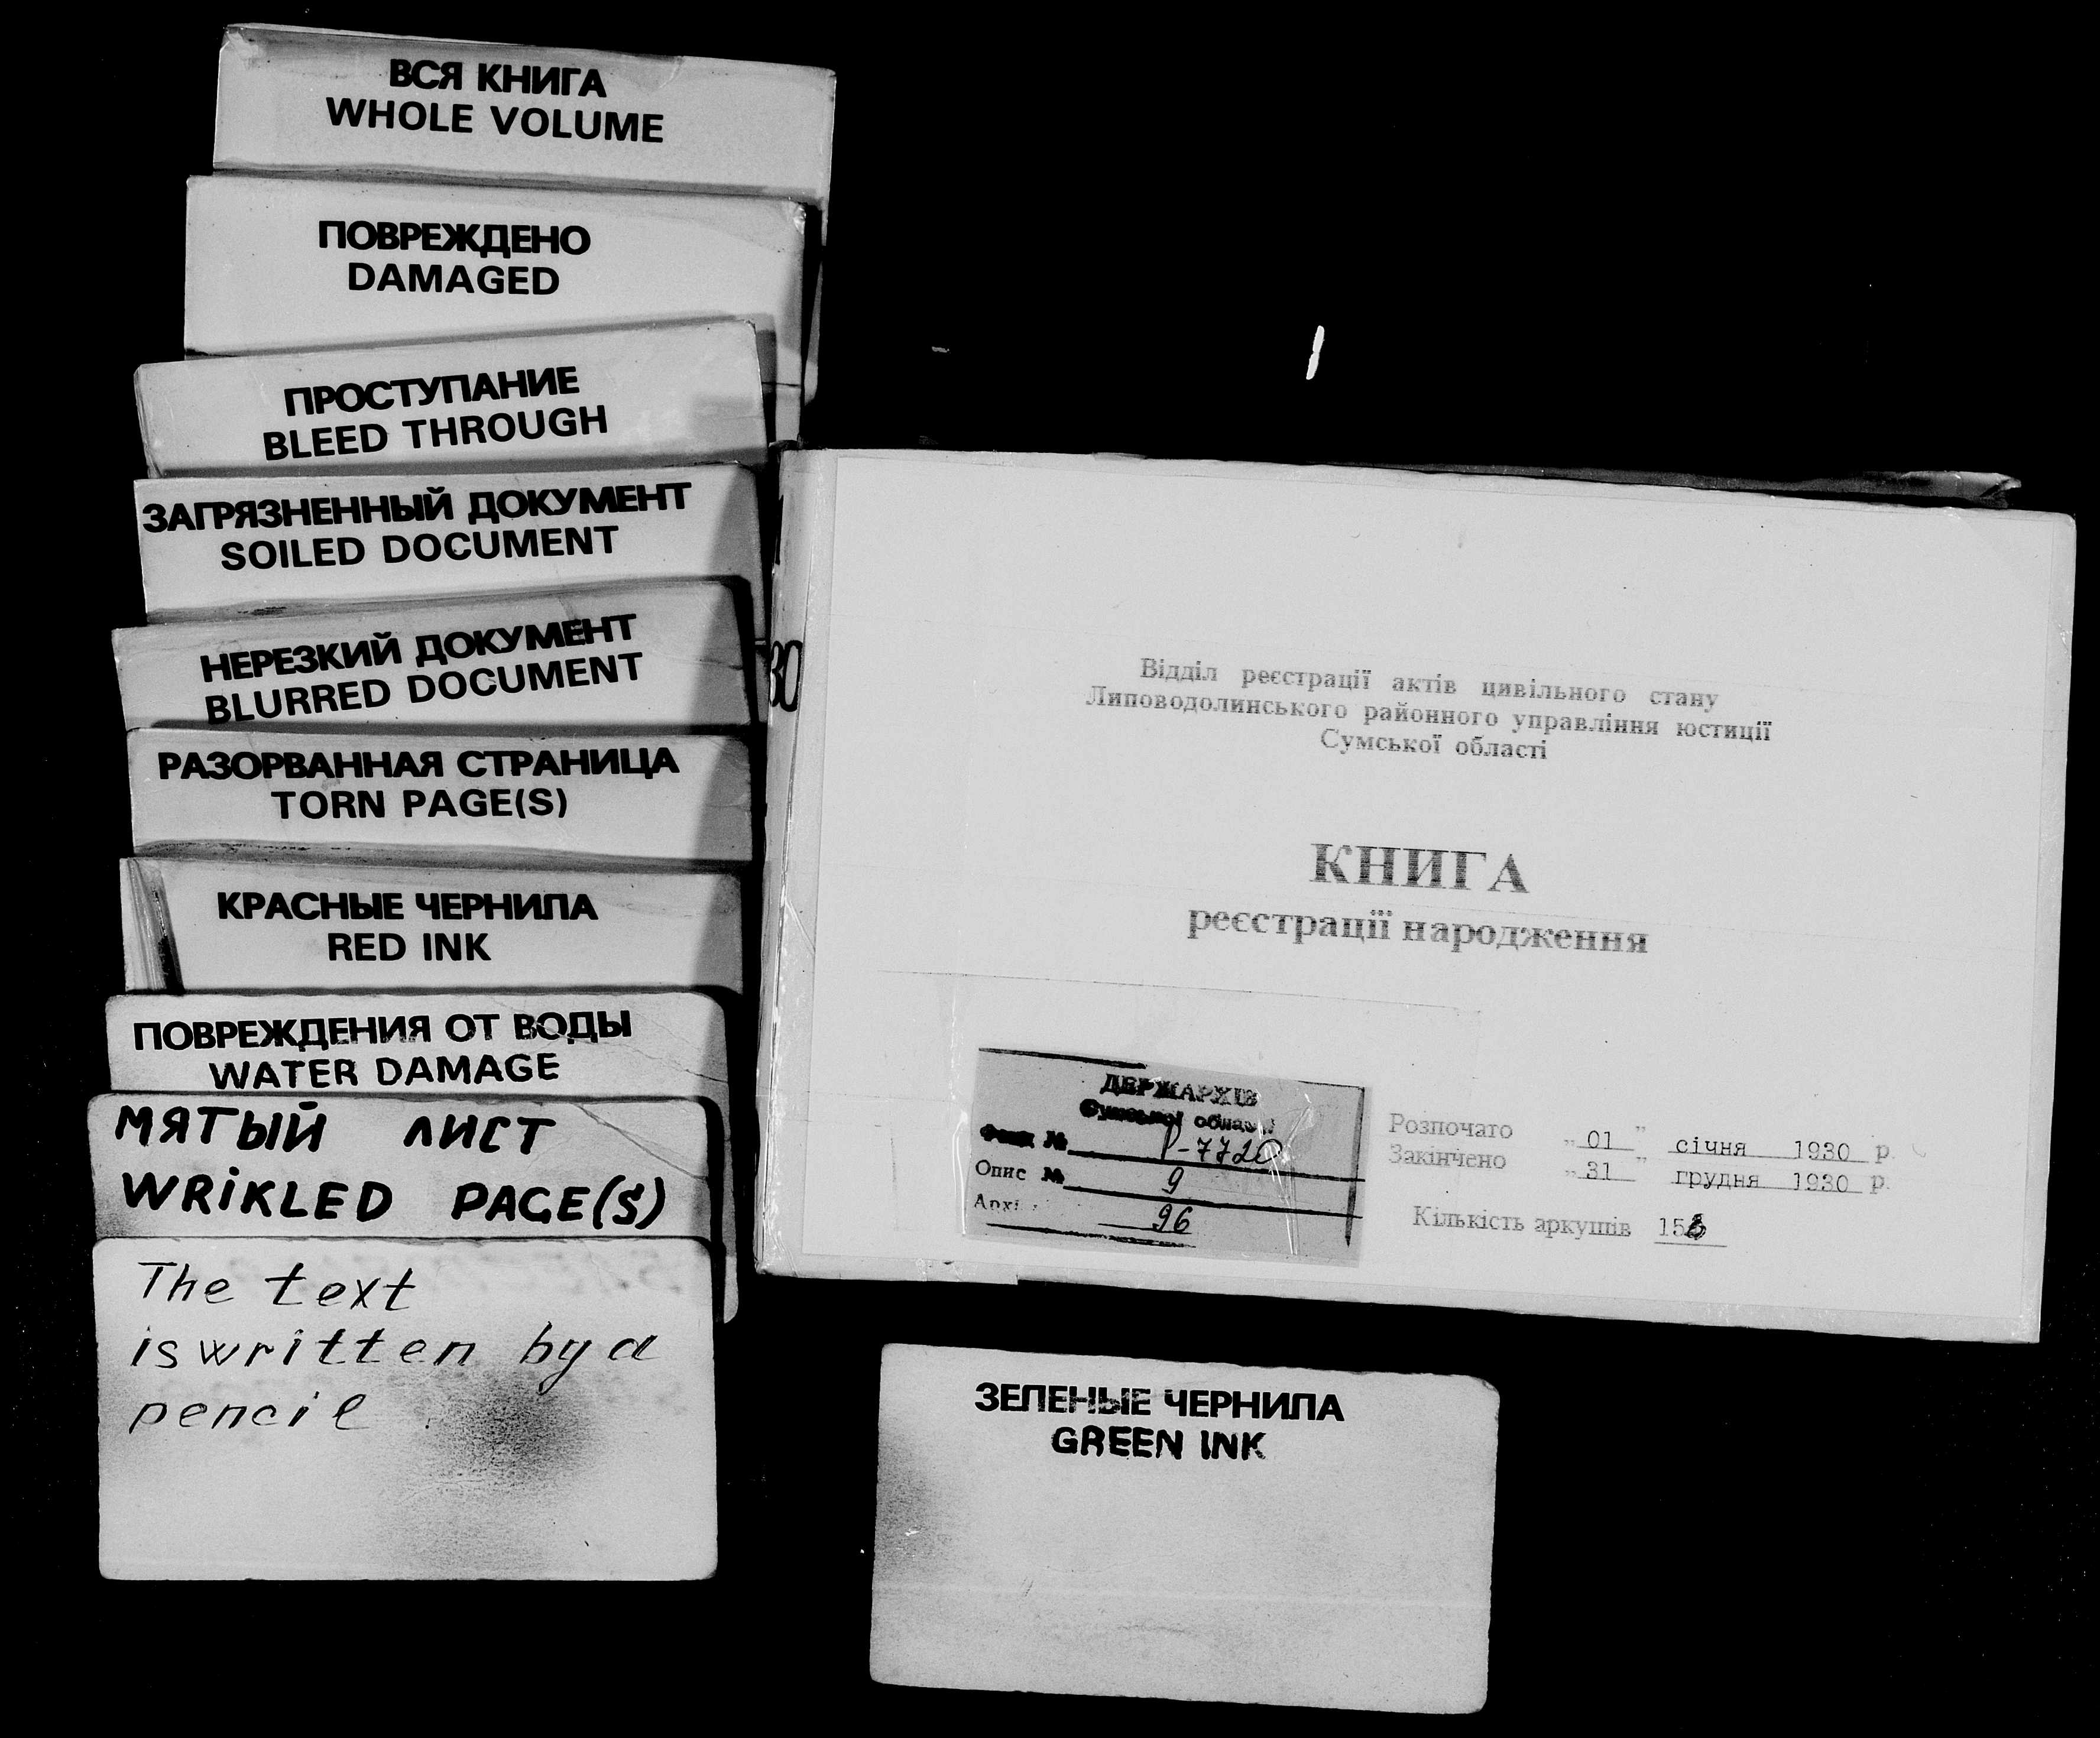 ВСЯ КНИГА
WHOLE VOLUME
ПОВРЕЖДЕНО
DAMAGED
ПРОСТУПАНИЕ
BLEED THROUGH
ЗАГРЯЗНЕННЫЙ ДОКУМЕНТ
SOILED DOCUMENT
НЕРЕЗКИЙ ДОКУМЕНТ
BLURRED DOCUMENT
РАЗОРВАННАЯ СТРАНИЦА
TORN PAGE(S)
КРАСНЫЕ ЧЕРНИЛА
RED INK
ПОВРЕЖДЕНИЯ ОТ ВОДЫ
WATER DAMAGE
МЯТЫЙ ЛИСТ
WRIKLED PAGE(S)
The text
is written by a
pencil
30
Відділ реєстрації актів цивільного стану
Липоводолинського районного управління юстиції
Сумської області
КНИГА
реєстрації народження
ДЕРЖАРХІВ
Сумської області
Фонд № Р-7720
Опис № 9
96
Розпочато „ 01 " січня 1930 р.
Закінчено „ 31 " грудня 1930 р.
Кількість аркушів
ЗЕЛЕНЫЕ ЧЕРНИЛА
GREEN INK